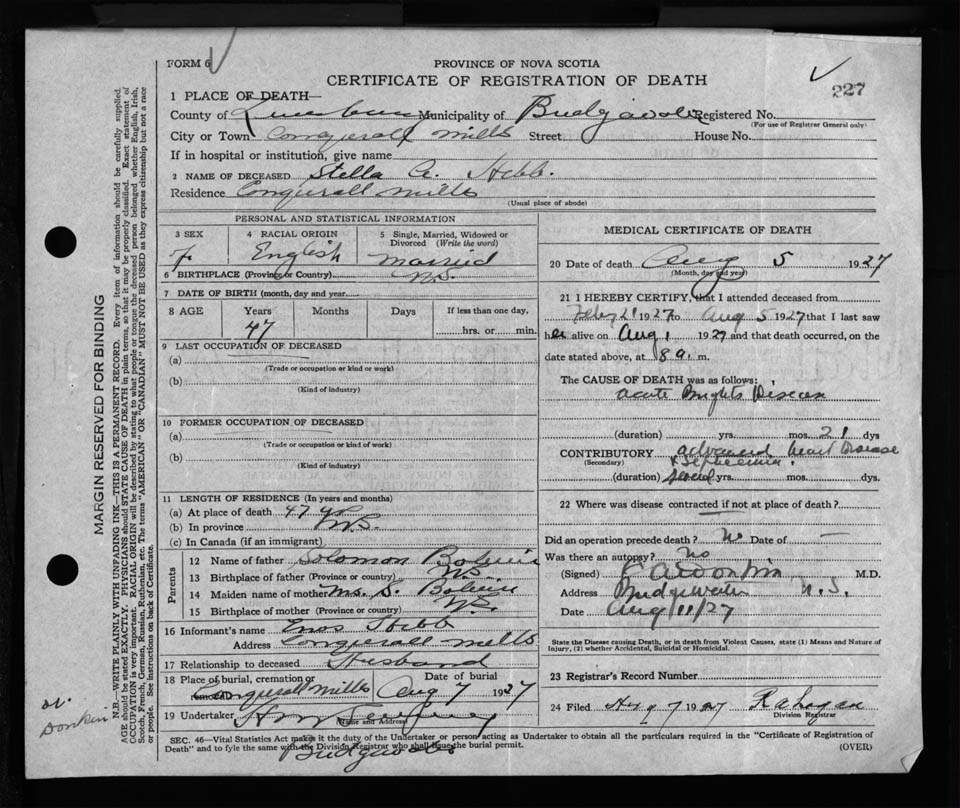 FORM 6
PROVINCE OF NOVA SCOTIA
CERTIFICATE OF REGISTRATION OF DEATH
227
1 PLACE OF DEATH—
County of Lunenburg Municipality of Registered No.
(For use of Registrar General only)
City or Town Conquerall Mills Street House No.
If in hospital or institution, give name
2 NAME OF DECEASED Stella A. Hebb.
Residence Conquerall Mills
(Usual place of abode)
PERSONAL AND STATISTICAL INFORMATION
3 SEX
F.
4 RACIAL ORIGIN
English
5 Single, Married, Widowed or Divorced (Write the word)
Married
6 BIRTHPLACE (Province or Country) N.S.
7 DATE OF BIRTH (month, day and year)
8 AGE Years Months Days If less than one day,
47 hrs. or min.
9 LAST OCCUPATION OF DECEASED
(a)
(Trade or occupation or kind or work)
(b)
(Kind of industry)
10 FORMER OCCUPATION OF DECEASED
(a)
(Trade or occupation or kind of work)
(b)
(Kind of industry)
11 LENGTH OF RESIDENCE (In years and months)
(a) At place of death 47 yrs
(b) In province N.S.
(c) In Canada (if an immigrant)
Parents
12 Name of father Solomon
13 Birthplace of father (Province or country) N.S.
14 Maiden name of mother Mrs. S.
15 Birthplace of mother (Province or country) N.S.
16 Informant's name Enos Hebb
Address Conquerall Mills
17 Relationship to deceased Husband
18 Place of burial, cremation or removal Date of burial
Conquerall Mills Aug 7 1927
19 Undertaker
(Name and Address)
MEDICAL CERTIFICATE OF DEATH
20 Date of death Aug 5 1927
(Month, day and year)
21 I HEREBY CERTIFY, that I attended deceased from
Feby 21 1927 to Aug 5 1927 that I last saw
her alive on Aug 1 1927 and that death occurred, on the
date stated above, at 8 a. m.
The CAUSE OF DEATH was as follows:
Acute Brights Disease
(duration) yrs. mos. 21 dys
CONTRIBUTORY advanced heart Disease
(Secondary)
(duration) several yrs. mos. dys.
22 Where was disease contracted if not at place of death?
Did an operation precede death? No Date of —
Was there an autopsy? No
(Signed) M.D.
Address Bridgewater N.S.
Date Aug 11/27
State the Disease causing Death, or in death from Violent Causes, state (1) Means and Nature of Injury, (2) whether Accidental, Suicidal or Homicidal.
23 Registrar's Record Number
24 Filed 7 1927
Division Registrar
SEC. 46—Vital Statistics Act make it the duty of the Undertaker or person acting as Undertaker to obtain all the particulars required in the "Certificate of Registration of
Death" and to fyle the same with the Division Registrar who shall issue the burial permit.
(OVER)
MARGIN RESERVED FOR BINDING
N.B.—WRITE PLAINLY WITH UNFADING INK—THIS IS A PERMANENT RECORD. Every item of information should be carefully supplied.
AGE should be stated EXACTLY. PHYSICIANS should STATE CAUSE OF DEATH in plain terms, so that it may be properly classified. Exact statement of
OCCUPATION is very important. RACIAL ORIGIN will be described by stating to what people or tongue the deceased person belonged whether English, Irish,
Scotch, French, German, Russian, Ruthenian, etc. The terms "AMERICAN" or "CANADIAN" MUST NOT BE USED as they express citizenship but not a race
or people. See instructions on back of Certificate.
Donkin